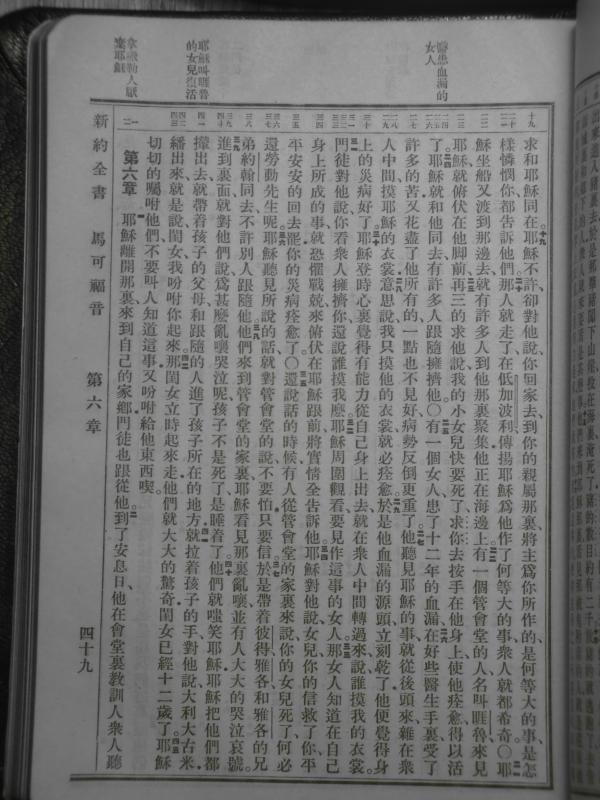 醫患血漏的
女人
耶穌叫睚魯
的女兒復活
拿撒勒人厭
棄耶穌
求和耶穌同在耶穌不許却對他說、你回家去、到你的親屬那裏、將主爲你所作的、是何等大的事、是怎
樣憐憫你、都告訴他們那人就走了、在低加波利、傳揚耶穌爲他作了何等大的事、衆人就都希奇〇耶
穌坐船又渡到那邊去、就有許多人到他那裏聚集他正在海邊上有一個管會堂的人、名叫睚魯、來見
耶穌、就俯伏在他脚前再三的求他說、我的小女兒快要死了、求你去按手在他身上、使他痊愈、得以活
了耶穌就和他同去、有許多人跟隨擁擠他〇有一個女人、患了十二年的血漏在好些醫生手裏、受了
許多的苦、又花盡了他所有的、一點也不見好、病勢反倒更重了他聽見耶穌的事、就從後頭來、雜在衆
人中間、摸耶穌的衣裳意思說、我只摸他的衣裳、就必痊愈於是他血漏的源頭、立刻乾了、他便覺得身
上的災病好了耶穌登時心裏覺得有能力從自己身上出去、就在衆人中間轉過來、說、誰摸我的衣裳
門徒對他說、你看衆人擁擠你、還說誰摸我麼耶穌周圍觀看、要見作這事的女人那女人知道在自己
身上所成的事、就恐懼戰兢、來俯伏在耶穌跟前、將實情全告訴他耶穌對他說、女兒、你的信救了你、平
平安安的回去罷、你的災病痊愈了〇還說話的時候、有人從管會堂的家裏來說、你的女兒死了、何必
還勞動先生呢耶穌聽見所說的話、就對管會堂的說、不要怕、只要信於是帶着彼得、雅各、和雅各的兄
弟約翰同去、不許別人跟隨他他們來到管會堂的家裏、耶穌看見那裏亂嚷、並有人大大的哭泣哀號
進到裏面、就對他們說、爲甚麼亂嚷哭泣呢、孩子不是死了、是睡着了他們就嗤笑耶穌、耶穌把他們都
攆出去、就帶着孩子的父母、和跟隨的人、進了孩子所在的地方就拉着孩子的手、對他說、大利大古米
繙出來、就是說、閨女、我吩咐你起來那閨女立時起來走他們就大大的驚奇、閨女已經十二歲了耶穌
切切的囑咐他們、不要叫人知道這事、又吩咐給他東西喫
第六章　耶穌離開那裏、來到自己的家鄉、門徒也跟從他到了安息日、他在會堂裏教訓人、衆人聽
新約全書　馬可福音　第六章　四十九